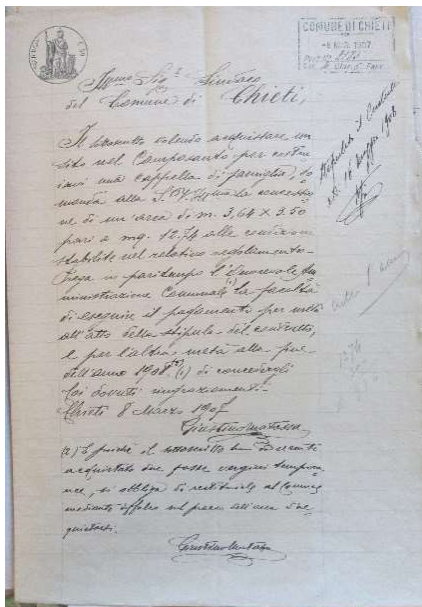 COMUNE DI CHIETI
Ill.mo Sig. Sindaco
del Comune di Chieti,
Il sottoscritto volendo acquistare un
sito nel Camposanto per costru
irvi una cappella di famiglia, do
manda alla S.V. Ill.ma la concessio
ne di un'area di m. 3,64 x 3.50
pari a mq. 12.74 alle condizioni
stabilite nel relativo regolamento.
Prega in pari tempo l'Onorevole Am
ministrazione Comunale la facoltà
di eseguire il pagamento per metà
all'atto della stipula del contratto,
e per l'altra metà alla fine
dell'anno 1908 (1) di concedergli
Coi dovuti ringraziamenti.
Chieti 8 Marzo 1907
Giustino Matassa
acquistato due fosse vergini tempora
nee, si obbliga di restituirle al Comune
mediante diffalco sul prezzo dell'area
Stipulato il Contratto
16 Maggio 1908
12.74